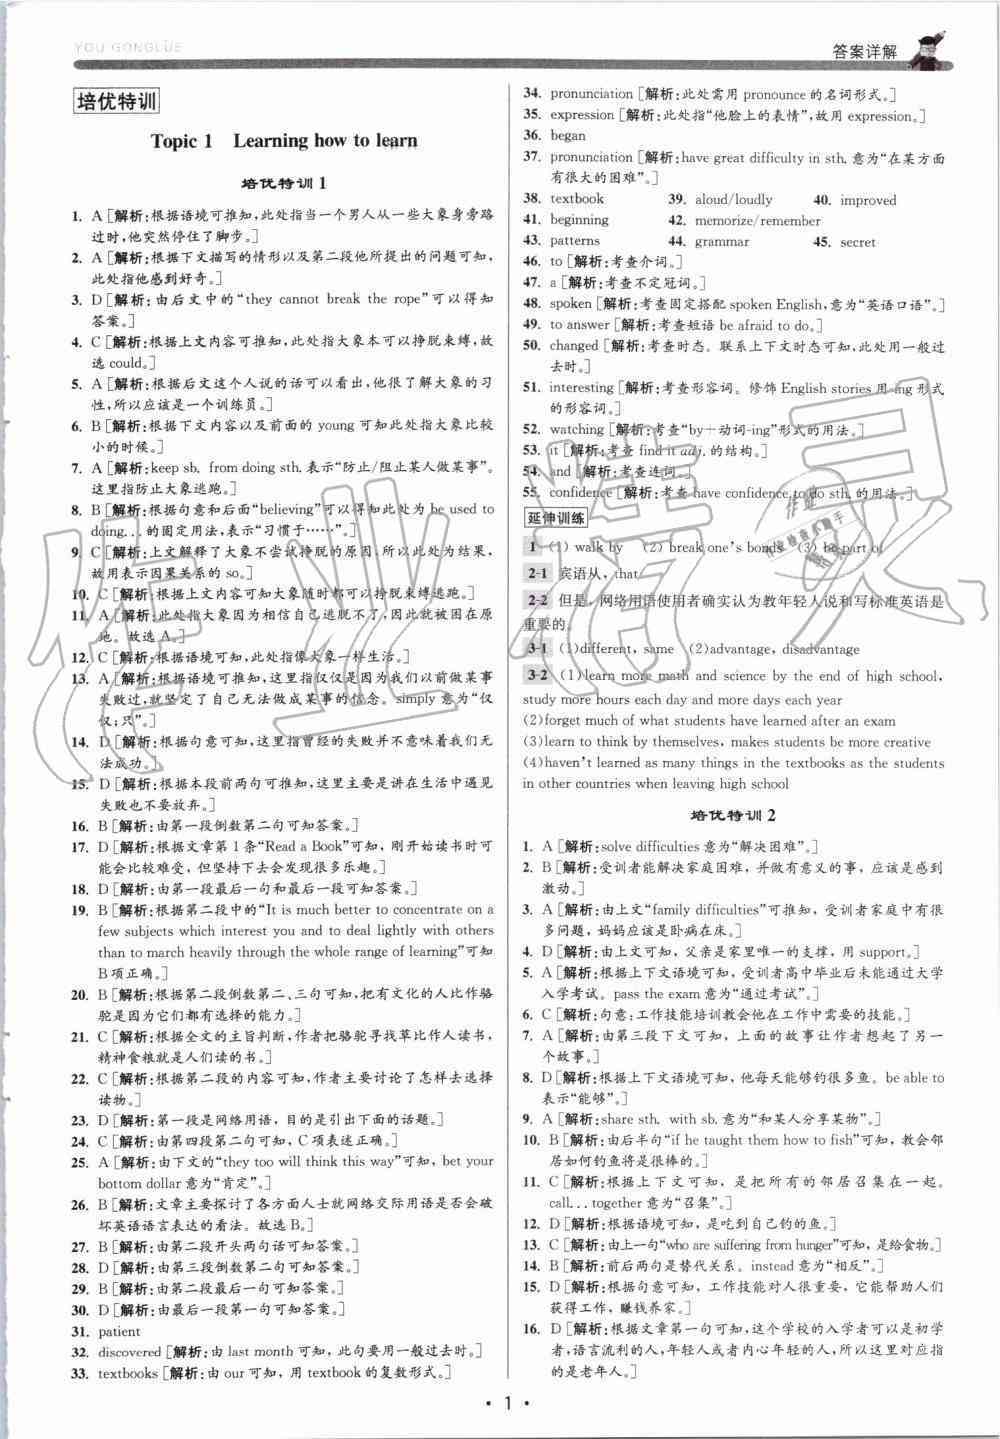 YOU GONGLUE
答案详解
培优特训
Topic 1 Learning how to learn
培优特训 1
1. A [解析:根据语境可推知,此处指当一个男人从一些大象身旁路
过时,他突然停住了脚步。]
2. A [解析:根据下文描写的情形以及第二段他所提出的问题可知,
此处指他感到好奇。]
3. D [解析:由后文中的“they cannot break the rope”可以得知
答案。]
4. C [解析:根据上文内容可推知,此处指大象本可以挣脱束缚,故
选 could。]
5. A [解析:根据后文这个人说的话可以看出,他很了解大象的习
性,所以应该是一个训练员。]
6. B [解析:根据下文内容以及前面的 young 可知此处指大象比较
小的时候。]
7. A [解析:keep sb. from doing sth. 表示“防止/阻止某人做某事”。
这里指防止大象逃跑。]
8. B [解析:根据句意和后面“believing”可以得知此处为 be used to
doing... 的固定用法,表示“习惯于……”。]
9. C [解析:上文解释了大象不尝试挣脱的原因,所以此处为结果,
故用表示因果关系的 so。]
10. C [解析:根据上文内容可知大象随时都可以挣脱束缚逃跑。]
11. A [解析:此处指大象因为相信自己逃脱不了,因此就被困在原
地。故选 A。]
12. C [解析:根据语境可知,此处指像大象一样生活。]
13. A [解析:根据语境可知,这里指仅仅是因为我们以前做某事
失败过,就坚定了自己无法做成某事的信念。simply 意为“仅
仅;只”。]
14. D [解析:根据句意可知,这里指曾经的失败并不意味着我们无
法成功。]
15. D [解析:根据本段前两句可推知,这里主要是讲在生活中遇见
失败也不要放弃。]
16. B [解析:由第一段倒数第二句可知答案。]
17. D [解析:根据文章第 1 条“Read a Book”可知,刚开始读书时可
能会比较难受,但坚持下去会发现很多乐趣。]
18. D [解析:由第一段最后一句和最后一段可知答案。]
19. B [解析:根据第二段中的“It is much better to concentrate on a
few subjects which interest you and to deal lightly with others
than to march heavily through the whole range of learning”可知
B 项正确。]
20. B [解析:根据第二段倒数第二、三句可知,把有文化的人比作骆
驼是因为它们都有选择的能力。]
21. C [解析:根据全文的主旨判断,作者把骆驼寻找草比作人读书,
精神食粮就是人们读的书。]
22. C [解析:根据第二段的内容可知,作者主要讨论了怎样去选择
读物。]
23. D [解析:第一段是网络用语,目的是引出下面的话题。]
24. C [解析:由第四段第二句可知,C 项表述正确。]
25. A [解析:由下文的“they too will think this way”可知, bet your
bottom dollar 意为“肯定”。]
26. B [解析:文章主要探讨了各方面人士就网络交际用语是否会破
坏英语语言表达的看法。故选 B。]
27. B [解析:由第二段开头两句话可知答案。]
28. D [解析:由第三段倒数第二句可知答案。]
29. B [解析:由第二段最后一句可知答案。]
30. D [解析:由最后一段第一句可知答案。]
31. patient
32. discovered [解析:由 last month 可知,此句要用一般过去时。]
33. textbooks [解析:由 our 可知,用 textbook 的复数形式。]
34. pronunciation [解析:此处需用 pronounce 的名词形式。]
35. expression [解析:此处指“他脸上的表情”,故用 expression。]
36. began
37. pronunciation [解析:have great difficulty in sth. 意为“在某方面
有很大的困难”。]
38. textbook 39. aloud/loudly 40. improved
41. beginning 42. memorize/remember
43. patterns 44. grammar 45. secret
46. to [解析:考查介词。]
47. a [解析:考查不定冠词。]
48. spoken [解析:考查固定搭配 spoken English,意为“英语口语”。]
49. to answer [解析:考查短语 be afraid to do。]
50. changed [解析:考查时态。联系上下文时态可知,此处用一般过
去时。]
51. interesting [解析:考查形容词。修饰 English stories 用-ing 形式
的形容词。]
52. watching [解析:考查“by+动词-ing”形式的用法。]
53. it [解析:考查 find it adj. 的结构。]
54. and [解析:考查连词。]
55. confidence [解析:考查 have confidence to do sth. 的用法。]
延伸训练
1 (1) walk by (2) break one's bonds (3) be part of
2-1 宾语从, that
2-2 但是,网络用语使用者确实认为教年轻人说和写标准英语是
重要的。
3-1 (1)different, same (2)advantage, disadvantage
3-2 (1)learn more math and science by the end of high school,
study more hours each day and more days each year
(2)forget much of what students have learned after an exam
(3)learn to think by themselves, makes students be more creative
(4)haven't learned as many things in the textbooks as the students
in other countries when leaving high school
培优特训 2
1. A [解析:solve difficulties 意为“解决困难”。]
2. B [解析:受训者能解决家庭困难,并做有意义的事,应该是感到
激动。]
3. A [解析:由上文“family difficulties”可推知,受训者家庭中有很
多问题,妈妈应该是卧病在床。]
4. D [解析:由上文可知,父亲是家里唯一的支撑,用 support。]
5. A [解析:根据上下文语境可知,受训者高中毕业后未能通过大学
入学考试。pass the exam 意为“通过考试”。]
6. C [解析:句意:工作技能培训教会他在工作中需要的技能。]
7. A [解析:由第三段下文可知,上面的故事让作者想起了另一
个故事。]
8. D [解析:根据上下文语境可知,他每天能够钓很多鱼。be able to
表示“能够”。]
9. A [解析:share sth. with sb. 意为“和某人分享某物”。]
10. B [解析:由后半句“if he taught them how to fish”可知,教会邻
居如何钓鱼将是很棒的。]
11. C [解析:根据上下文可知,是把所有的邻居召集在一起。
call... together 意为“召集”。]
12. D [解析:根据语境可知,是吃到自己钓的鱼。]
13. C [解析:由上一句“who are suffering from hunger”可知,是给食物。]
14. B [解析:前后两句是替代关系。instead 意为“相反”。]
15. D [解析:根据句意可知,工作技能对人很重要,它能帮助人们
获得工作,赚钱养家。]
16. D [解析:根据文章第一句可知,这个学校的入学者可以是初
学者,语言流利的人,年轻人或者内心年轻的人,所以这里对应指
的是老年人。]
• 1 •